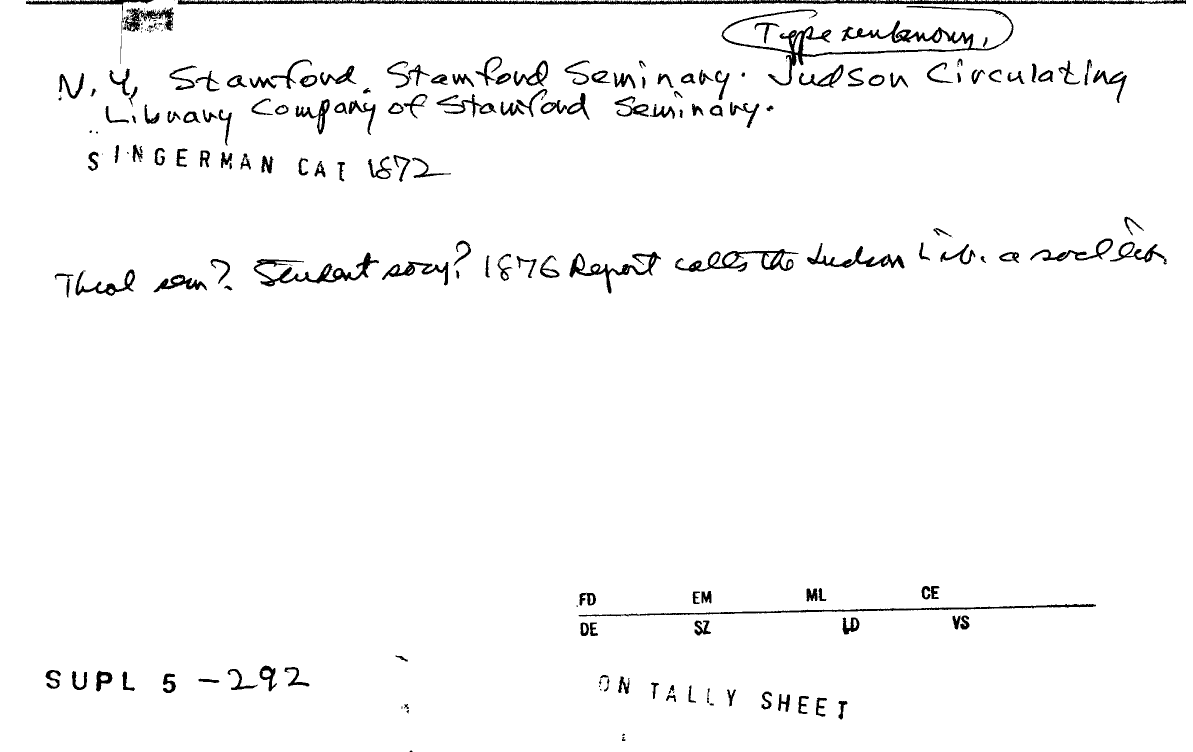 Type unknown.
N.Y, Stamford. Stamford Seminary. Judson Circulating
Library Company of Stamford Seminary.
SINGERMAN CAT 1872
Theol sem? Student socy? 1876 Report calls the Judson Lib. a socl lib.
FD EM ML CE
DE SZ LD VS
SUPL 5 -292
ON TALLY SHEET